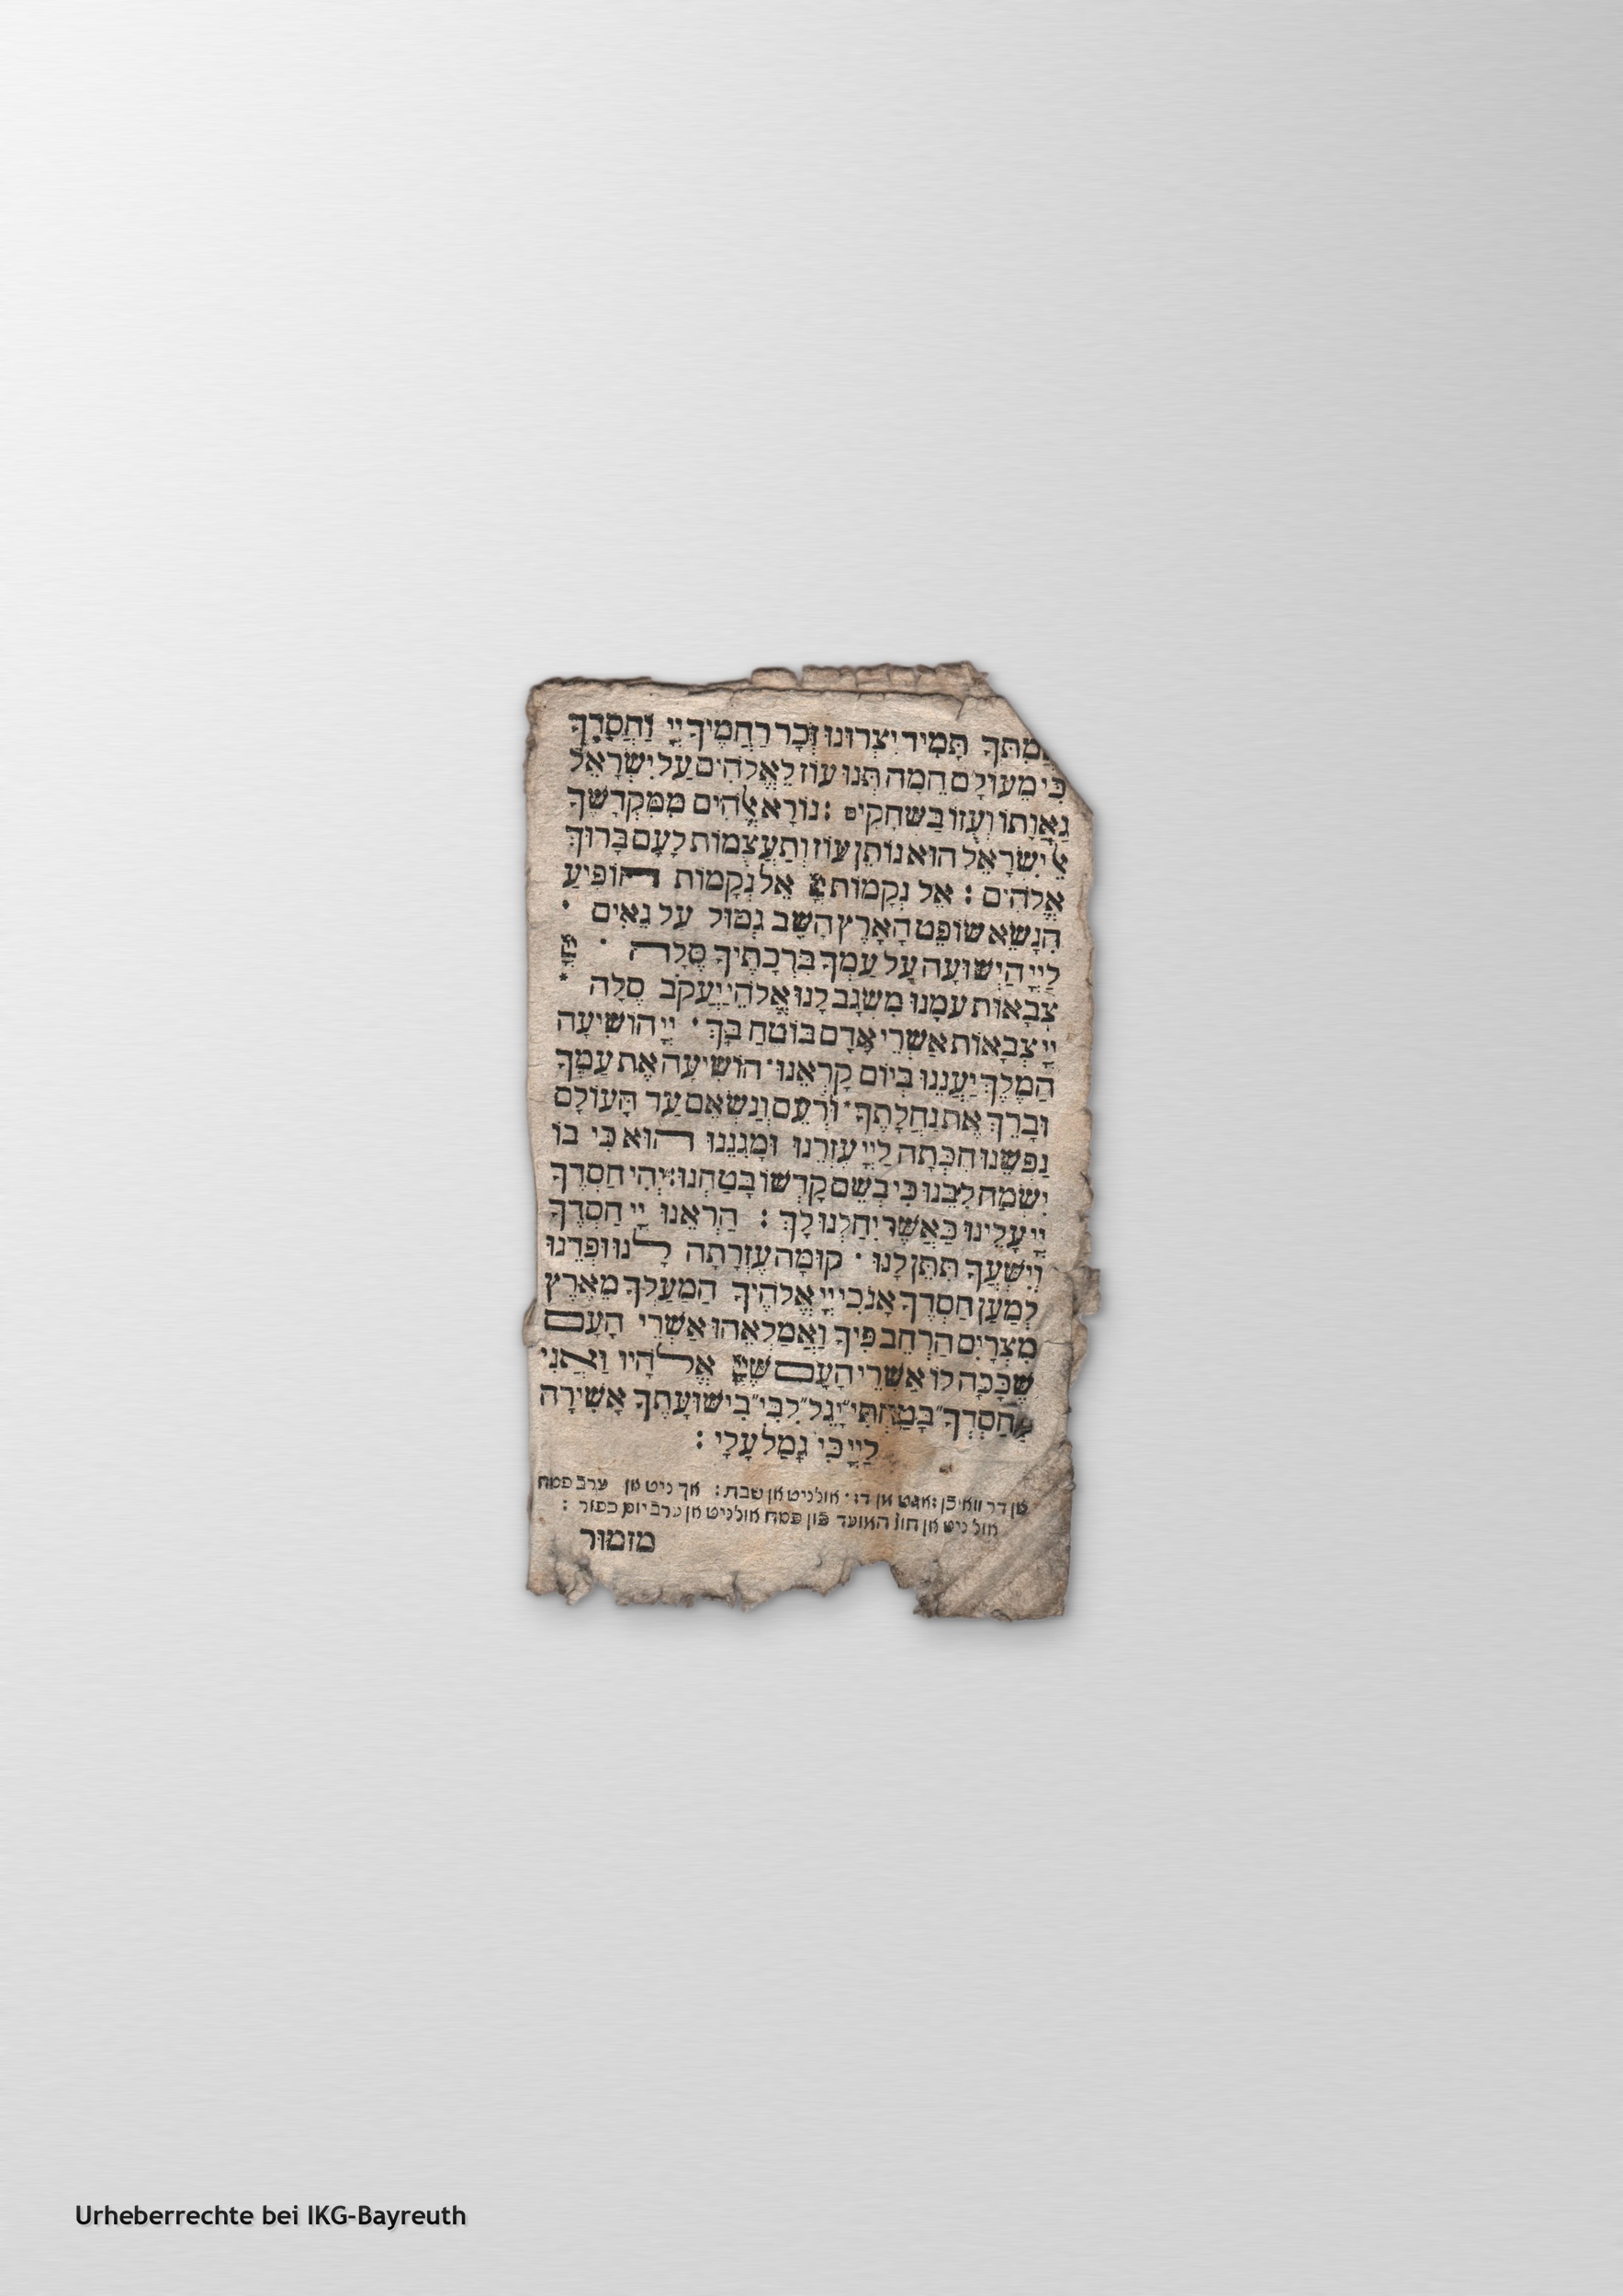 תָּמִיד יִצְּרוּנוּ זְכָר רַחֲמֶיךָ יְיָ וַחֲסָדֶךָ
כִּי מֵעוֹלָם הֵמָה תְּנוּ עוֹז לֵאֱלֹהִים עַל יִשְׂרָאֵל
גַאֲוָתוֹ וְעֻזּוֹ בַּשְּׁחָקִים : נוֹרָא אֱלֹהִים מִמִּקְדָשֶׁךָ
אֵל יִשְׂרָאֵל הוּא נוֹתֵן עוֹז וְתַעֲצֻמוֹת לָעָם בָּרוּךְ
אֱלֹהִים : אֵל נְקָמוֹת יְיָ אֵל נְקָמוֹת הוֹפִיעַ
הִנָשֵׂא שׁוֹפֵט הָאָרֶץ הָשֵׁב גְּמוּל עַל גֵּאִים ·
לַיְיָ הַיְשׁוּעָה עַל עַמְּךָ בִרְכָתֶיךָ סֶלָה · יְיָ
צְבָאוֹת עִמָּנוּ מִשְׂגָּב לָנוּ אֱלֹהֵי יַעֲקֹב סֶלָה ·
יְיָ צְבָאוֹת אַשְׁרֵי אָדָם בּוֹטֵחַ בָּךְ · יְיָ הוֹשִׁיעָה
הַמֶּלֶךְ יַעֲנֵנוּ בְיוֹם קָרְאֵנוּ · הוֹשִׁיעָה אֶת עַמֶּךָ
וּבָרֵךְ אֶת נַחֲלָתֶךָ · וּרְעֵם וְנַשְּׂאֵם עַד הָעוֹלָם
נַפְשֵׁנוּ חִכְּתָה לַיְיָ עֶזְרֵנוּ וּמָגִנֵּנוּ הוּא כִּי בוֹ
יִשְׂמַח לִבֵּנוּ כִּי בְשֵׁם קָדְשׁוֹ בָטָחְנוּ : יְהִי חַסְדְּךָ
יְיָ עָלֵינוּ כַּאֲשֶׁר יִחַלְנוּ לָךְ : הַרְאֵנוּ יְיָ חַסְדֶּךָ
וְיֶשְׁעֲךָ תִּתֶּן לָנוּ · קוּמָה עֶזְרָתָה לָנוּ וּפְדֵנוּ
לְמַעַן חַסְדֶּךָ אָנֹכִי יְיָ אֱלֹהֶיךָ הַמַּעַלְךָ מֵאֶרֶץ
מִצְרָיִם הַרְחֶב פִּיךָ וַאֲמַלְאֵהוּ אַשְׁרֵי הָעָם
שֶׁכָּכָה לּוֹ אַשְׁרֵי הָעָם שֶׁיְיָ אֱלֹהָיו וַאֲנִי
בְּחַסְדְּךָ בָטַחְתִּי יָגֵל לִבִּי בִּישׁוּעָתֶךָ אָשִׁירָה
לַיְיָ כִּי גָמַל עָלָי :
דר · אונ' ניט אן שבת : אך ניט אן ערב פסח
אונ' ניט אן חול המועד פון פסח אונ' ניט אן ערב יום כפור :
מזמור
Urheberrechte bei IKG-Bayreuth